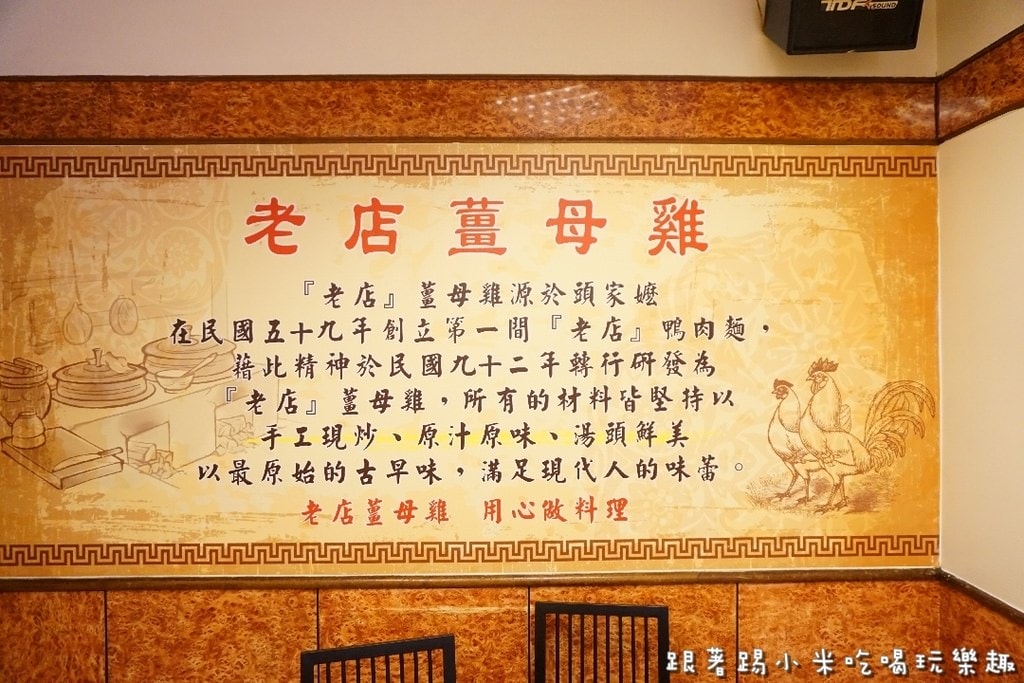 TDF SOUND
老店薑母雞
『老店』薑母雞源於頭家嬤
在民國五十九年創立第一間『老店』鴨肉麵，
藉此精神於民國九十二年轉行研發為
『老店』薑母雞，所有的材料皆堅持以
手工現炒、原汁原味、湯頭鮮美
以最原始的古早味，滿足現代人的味蕾。
老店薑母雞 用心做料理
跟著踢小米吃喝玩樂趣